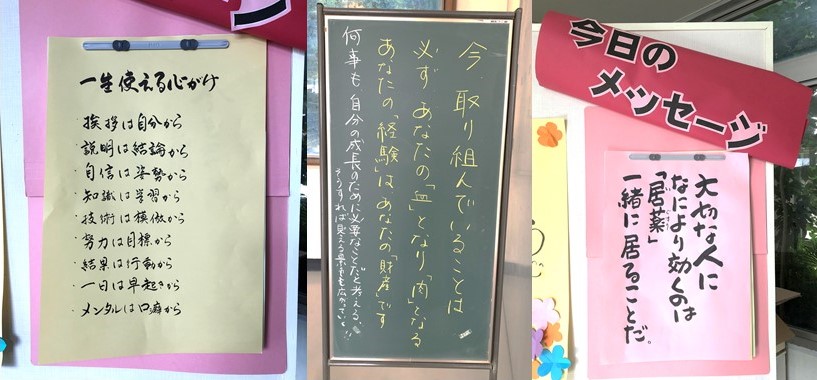 ージ
一生使える心がけ
・挨拶は自分から
・説明は結論から
・自信は姿勢から
・知識は学習から
・技術は模倣から
・努力は目標から
・結果は行動から
・一日は早起きから
・メンタルは口癖から
今、取り組んでいることは
必ず あなたの「血」となり「肉」となる
あなたの「経験」は あなたの「財産」です
何事も 自分の成長のために必要なことだと考える
そうすれば見える景色も広がっていく!!
今日の
メッセージ
大切な人に
なにより効くのは
「居薬」
一緒に居ることだ。